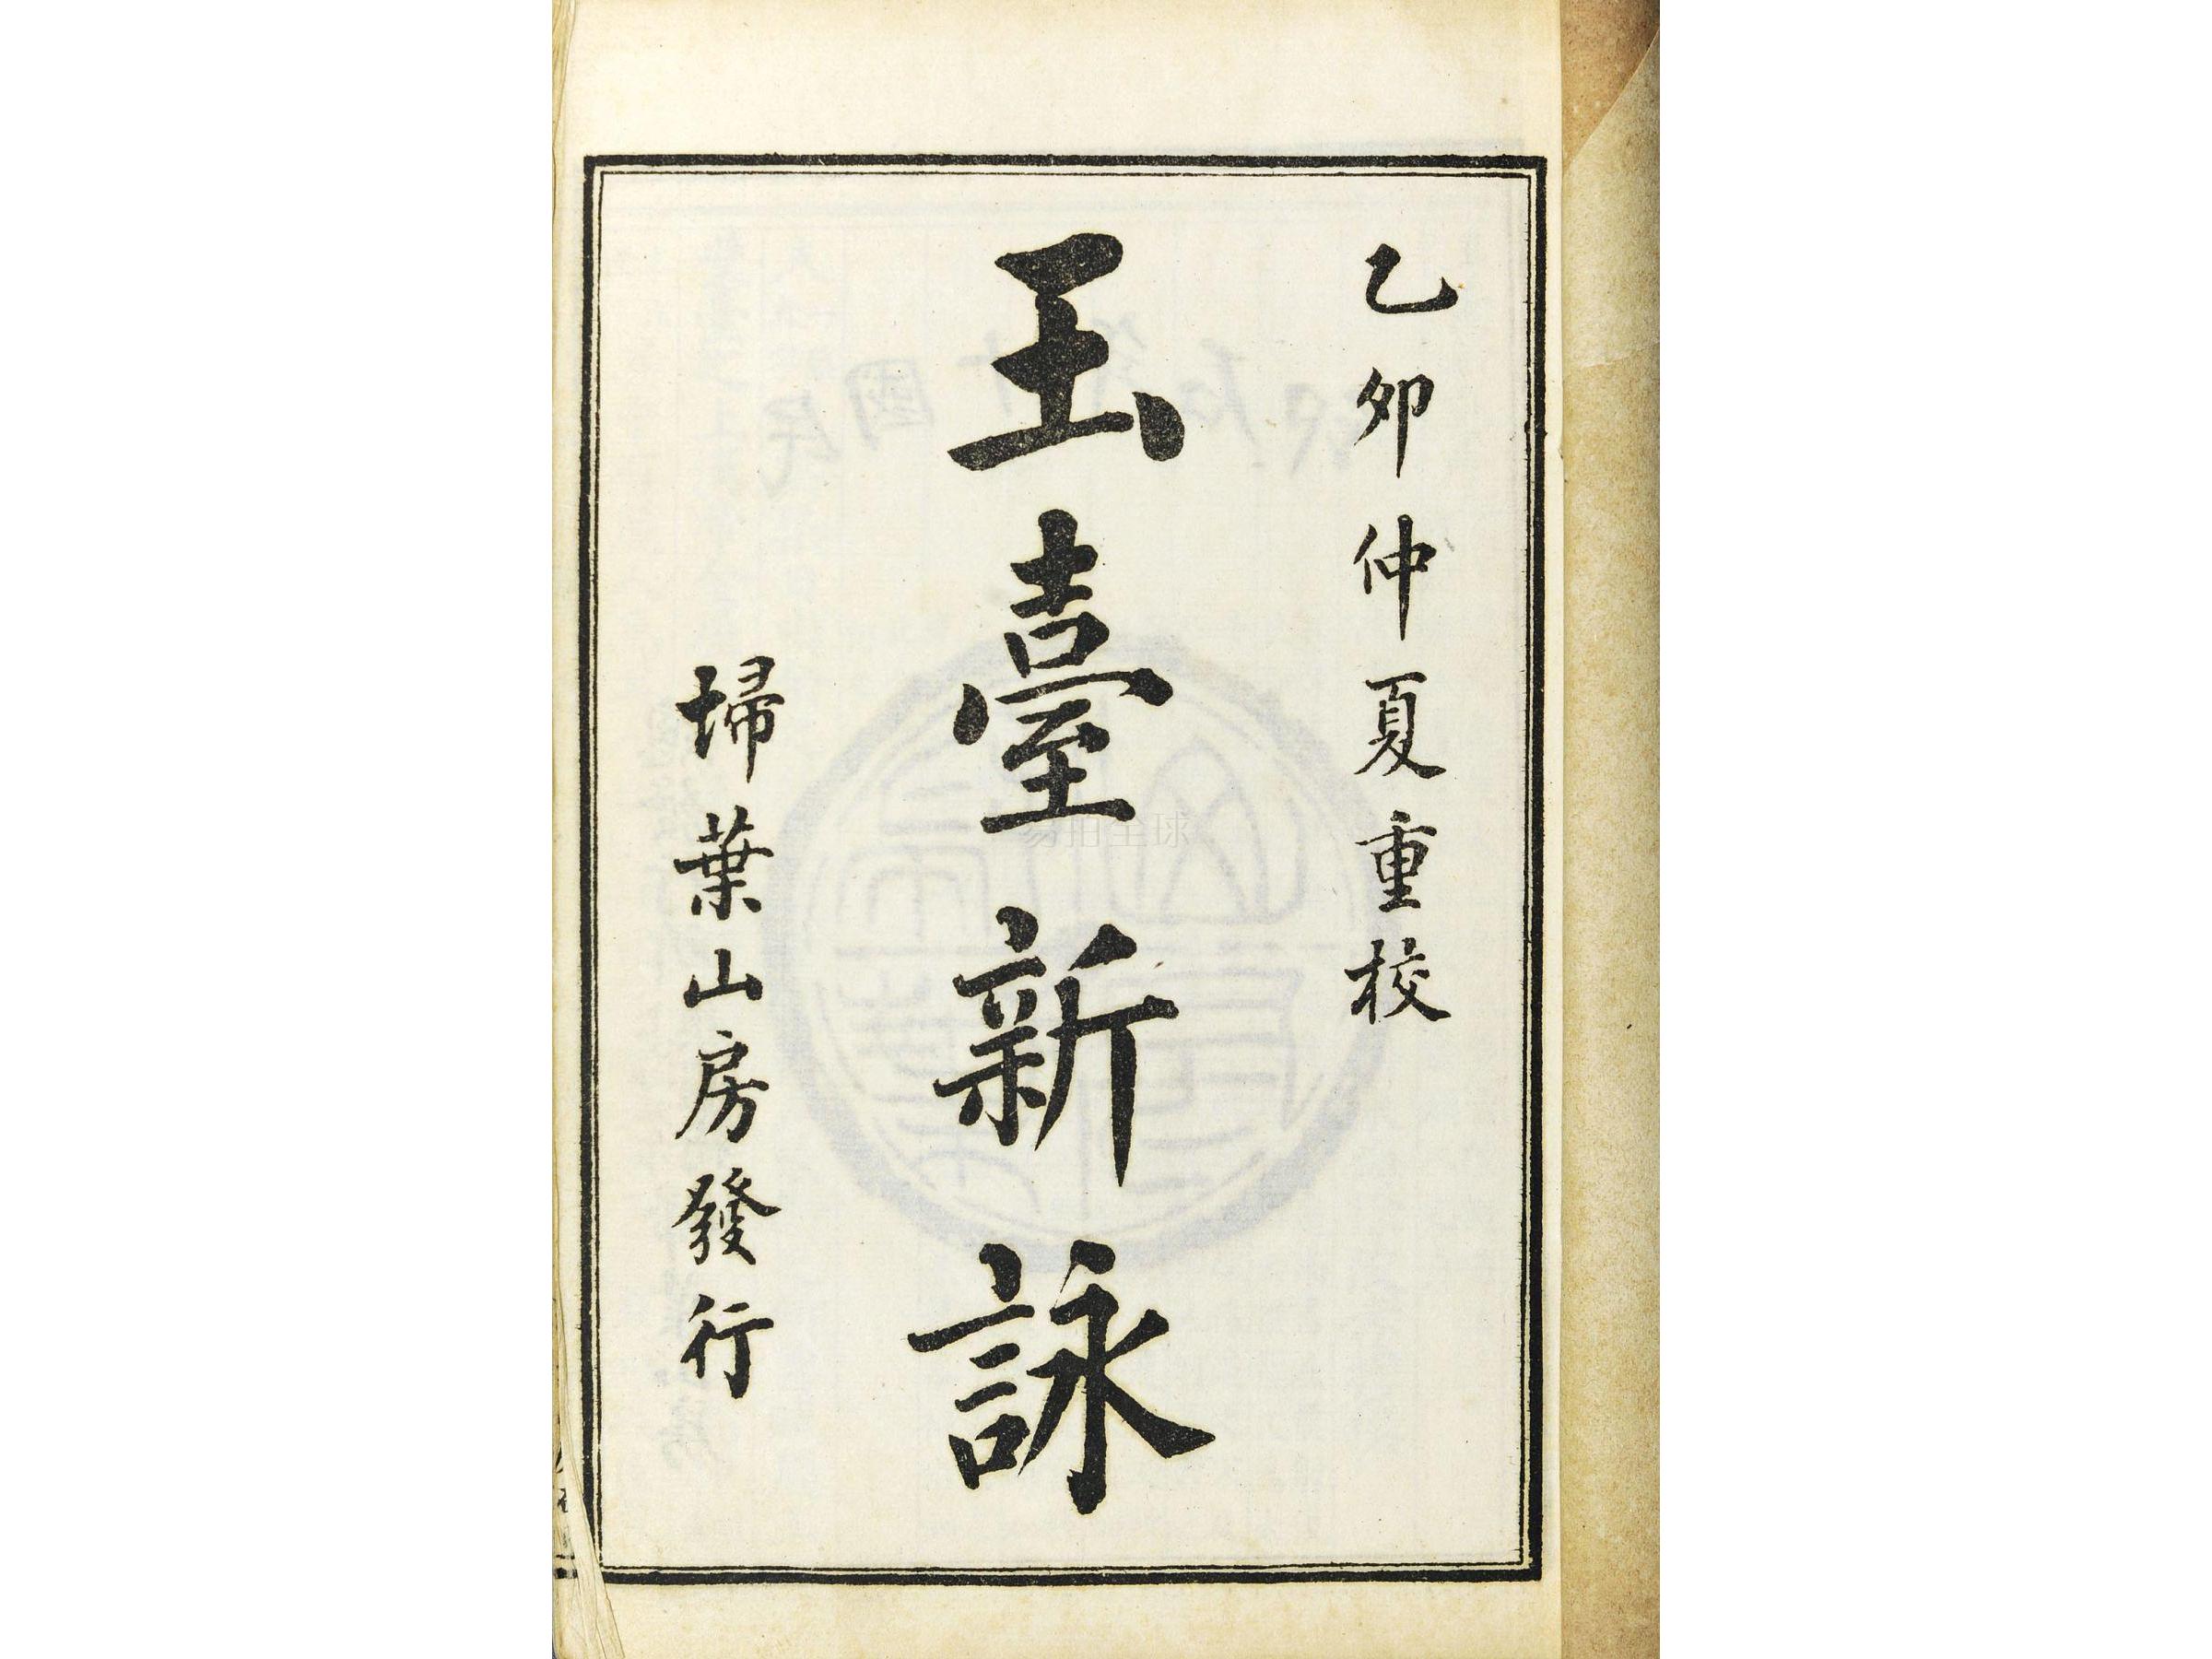 乙卯仲夏重校
玉臺新詠
埽葉山房發行
易拍全球